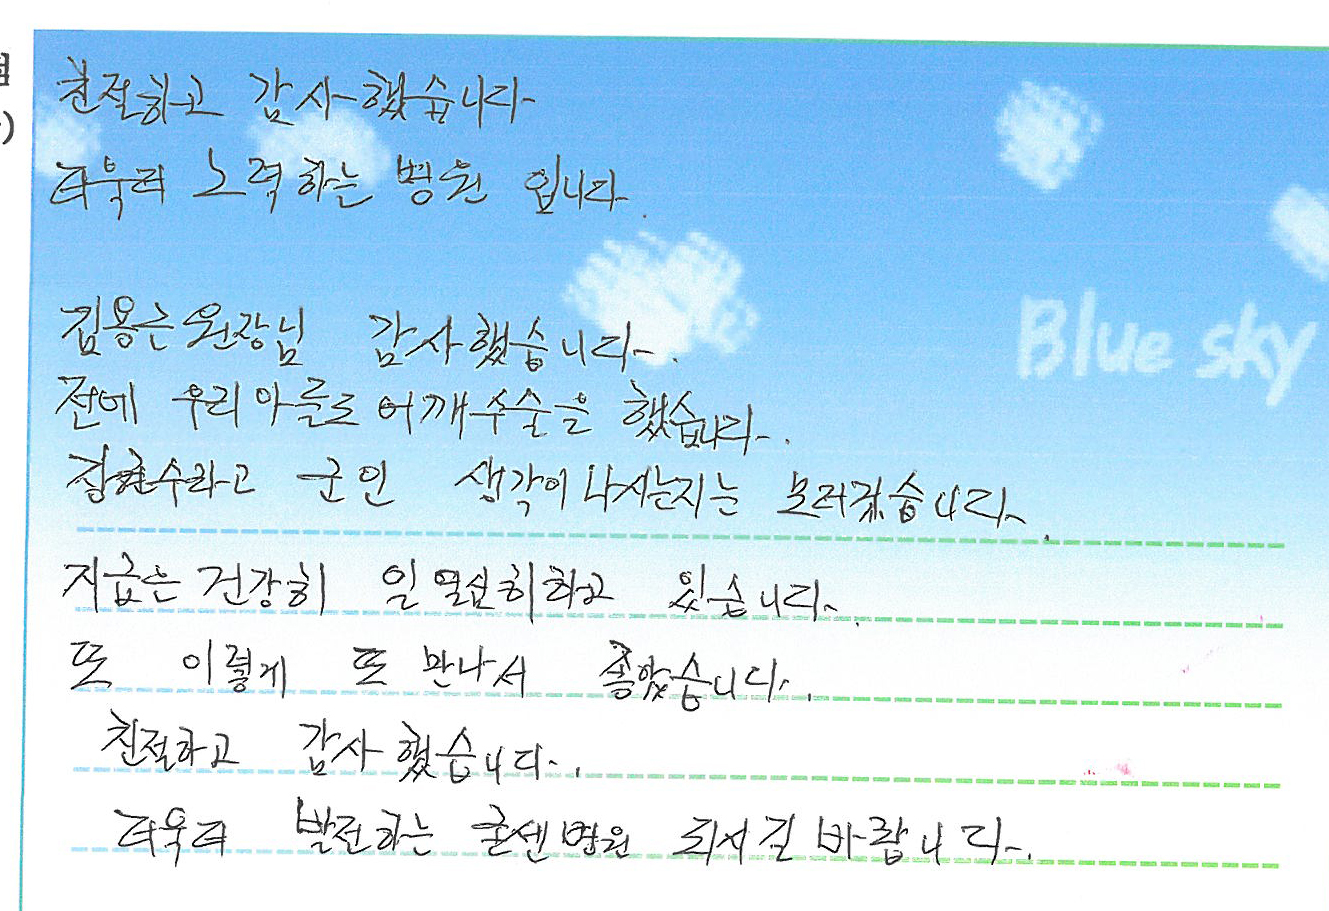 친절하고 감사했습니다
더욱더 노력하는 병원 입니다.
김용은원장님 감사했습니다.
전에 우리아들도 어깨수술을 했습니다.
군인 생각이나시는지는 모러겠습니다.
지금은 건강히 일 열심히하고 있습니다.
또 이렇게 또 만나서 좋았습니다.
친절하고 감사했습니다.
더욱더 발전하는 굳센병원 되시길 바랍니다.
Blue sky